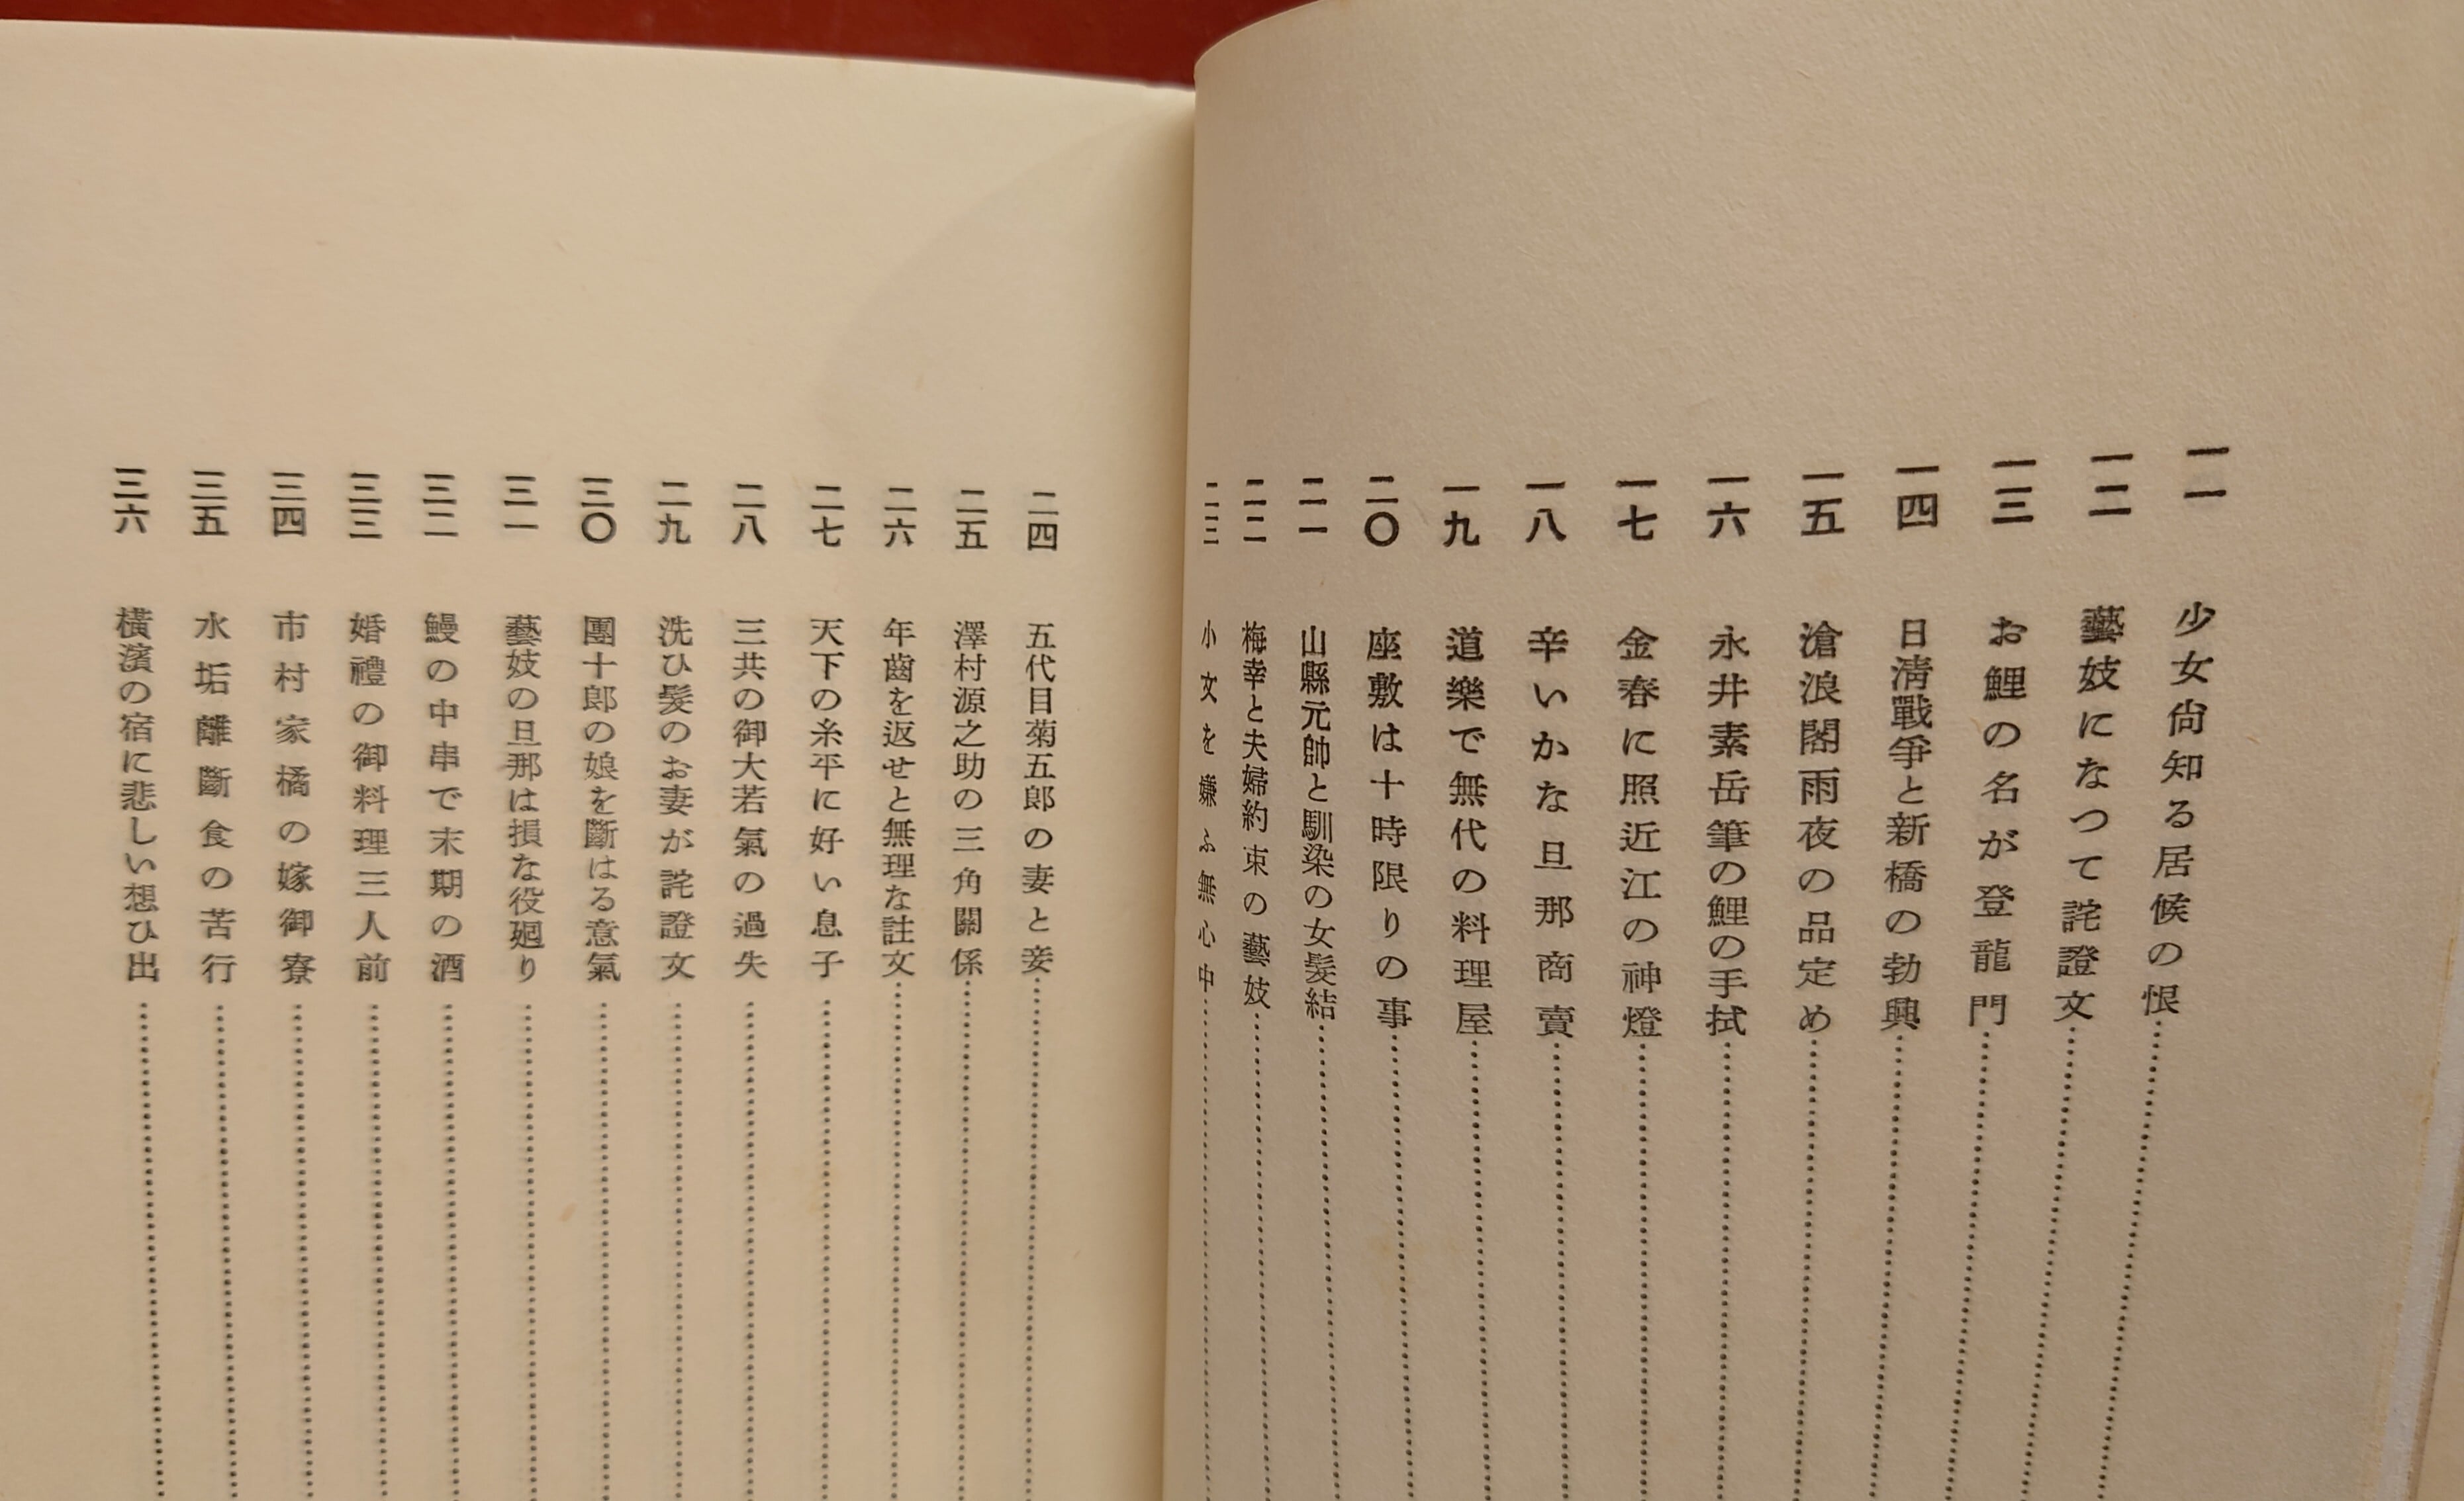 一一 少女尙知る居候の恨
一二 藝妓になつて詫證文
一三 お鯉の名が登龍門
一四 日淸戰爭と新橋の勃興
一五 滄浪閣雨夜の品定め
一六 永井素岳筆の鯉の手拭
一七 金春に照近江の神燈
一八 辛いかな旦那商賣
一九 道樂で無代の料理屋
二〇 座敷は十時限りの事
二一 山縣元帥と馴染の女髮結
二二 梅幸と夫婦約束の藝妓
二三 小女を嫌ふ無心中
二四 五代目菊五郎の妻と妾
二五 澤村源之助の三角關係
二六 年齒を返せと無理な註文
二七 天下の糸平に好い息子
二八 三共の御大若氣の過失
二九 洗ひ髮のお妻が詫證文
三〇 團十郎の娘を斷はる意氣
三一 藝妓の旦那は損な役廻り
三二 鰻の中串で末期の酒
三三 婚禮の御料理三人前
三四 市村家橘の嫁御寮
三五 水垢離斷食の苦行
三六 橫濱の宿に悲しい想ひ出